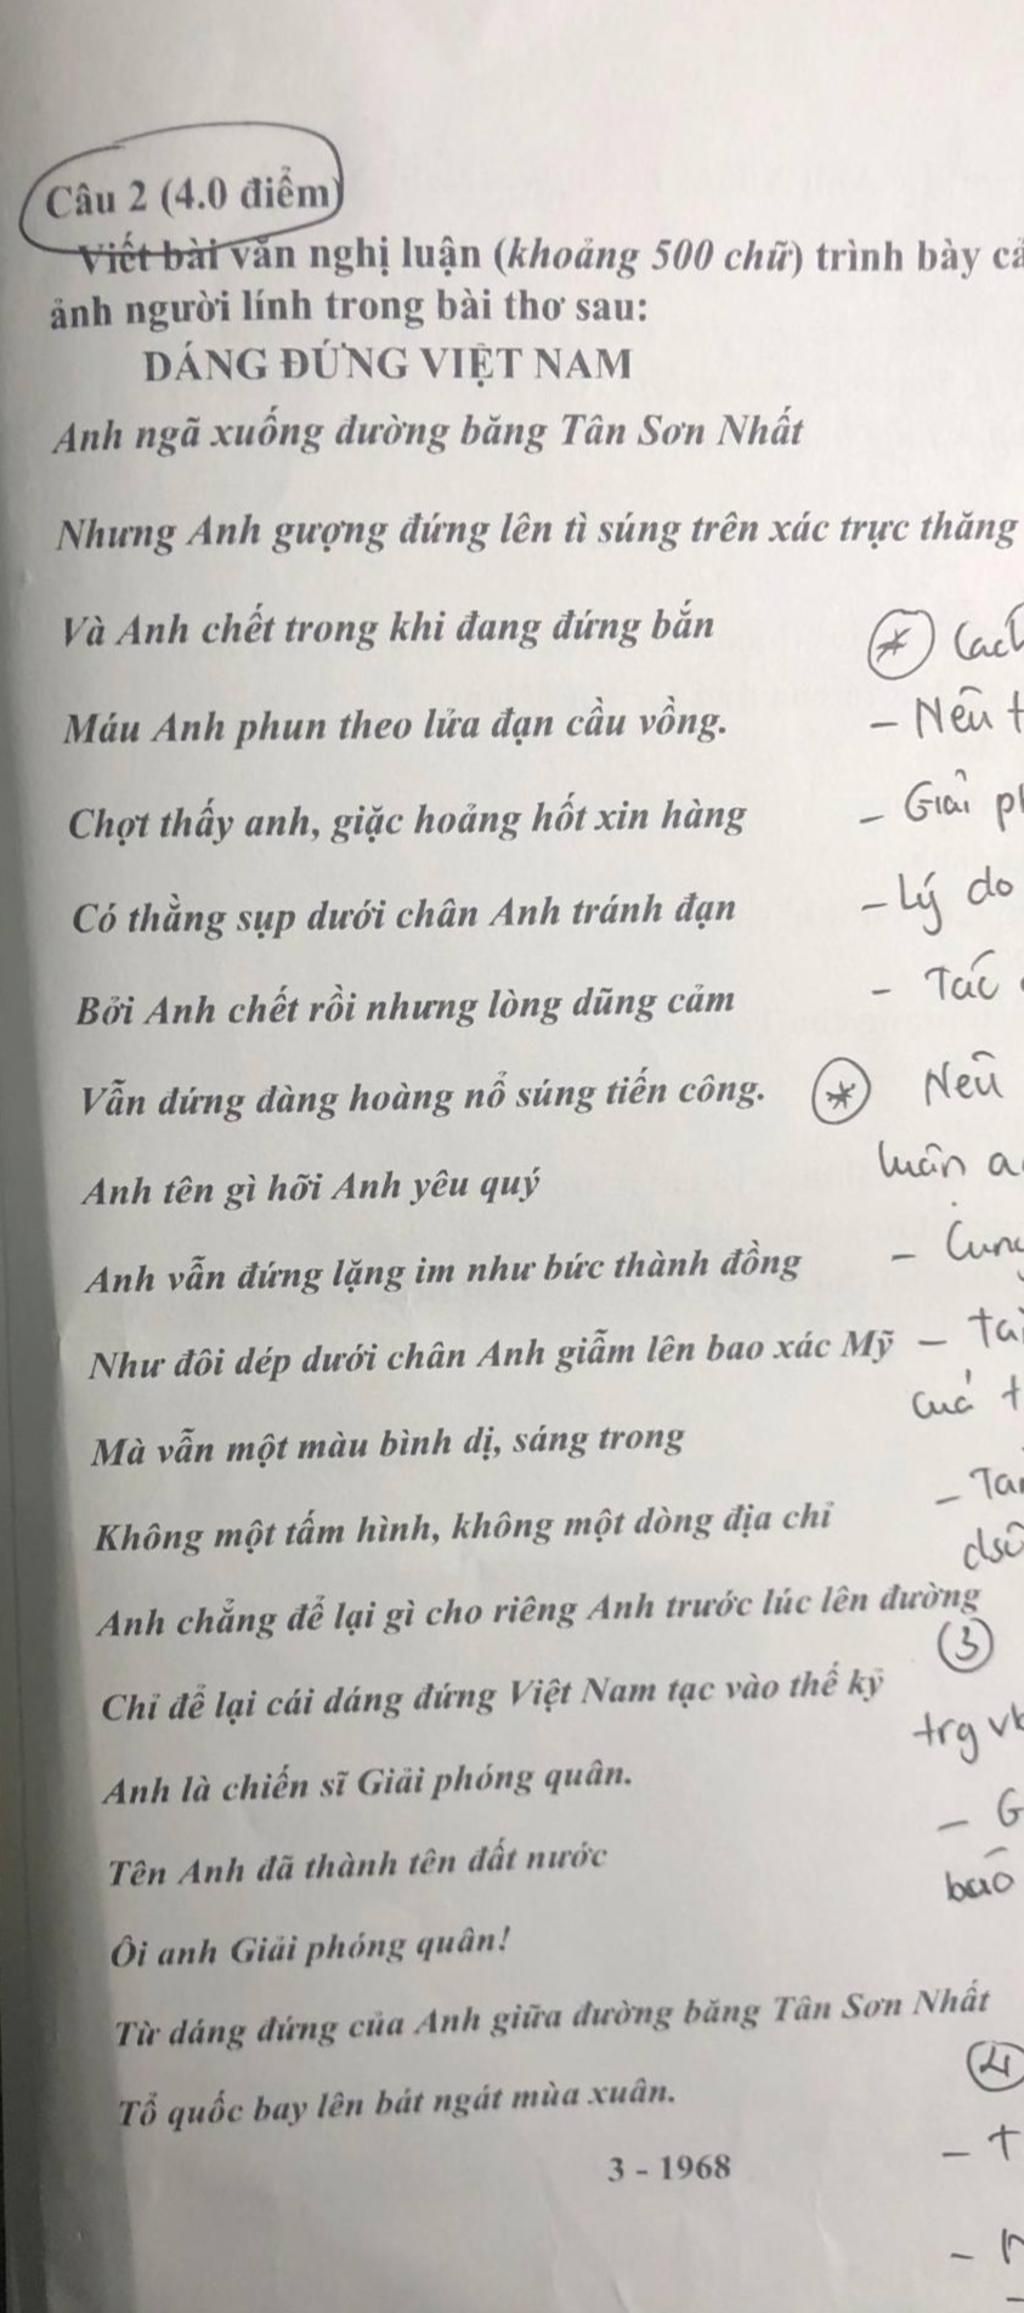 Câu 2 (4.0 điểm)
Viết bài văn nghị luận (khoảng 500 chữ) trình bày
ảnh người lính trong bài thơ sau:
DÁNG ĐỨNG VIỆT NAM
Anh ngã xuống đường băng Tân Sơn Nhất
Nhưng Anh gượng đứng lên tì súng trên xác trực thăng
Và Anh chết trong khi đang đứng bắn
Máu Anh phun theo lửa đạn cầu vồng.
- Nêu
Chợt thấy anh, giặc hoảng hốt xin hàng
- Giải
Có thằng sụp dưới chân Anh tránh đạn
- Lý do
Bởi Anh chết rồi nhưng lòng dũng cảm
- Tác
Vẫn đứng đàng hoàng nổ súng tiến công.
* Nêu
Anh tên gì hỡi Anh yêu quý
luận
Anh vẫn đứng lặng im như bức thành đồng
Như đôi dép dưới chân Anh giẫm lên bao xác Mỹ
Mà vẫn một màu bình dị, sáng trong
Không một tấm hình, không một dòng địa chỉ
Anh chẳng để lại gì cho riêng Anh trước lúc lên đường
3
Chỉ để lại cái dáng đứng Việt Nam tạc vào thế kỷ
trg
Anh là chiến sĩ Giải phóng quân.
Tên Anh đã thành tên đất nước
Ôi anh Giải phóng quân!
Từ dáng đứng của Anh giữa đường băng Tân Sơn Nhất
4
Tổ quốc bay lên bát ngát mùa xuân.
3 - 1968